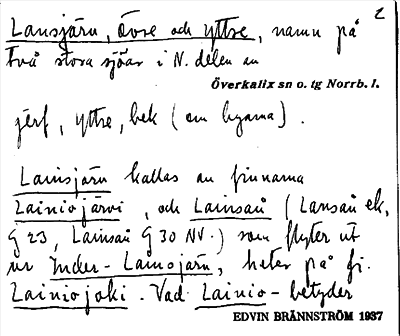 2
Lansjärv, övre och yttre, namn på
två stora sjöar i N. delen av
Överkalix sn o. tg Norrb. l.
järf, yttre, bek (om byarna).
Lainsjärv kallas av finnarna
Lainiojärvi, och Lainsån (Lansån ek.
G 23, Lainsån G 30 NV.) som flyter ut
ur Yuder-Lainsjärv, heter på fi.
Lainiojoki. Vad Lainio- betyder
EDVIN BRÄNNSTRÖM 1937